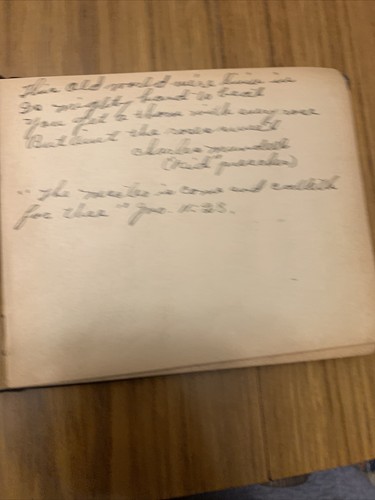 This old world we're livin in
Is mighty hard to beat
You get a thorn with every rose
But ain't the roses sweet
Charles
("Kid" preacher)
"The master is come and calleth
for thee" Jno. 11:28.